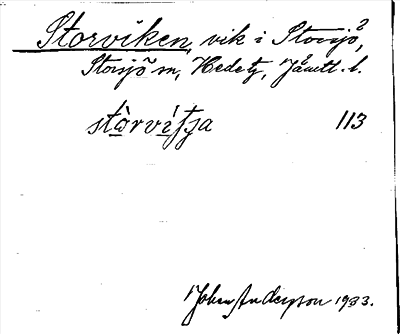 Storviken, vik i Storsjö,
Storsjö sn, Hede tg, Jämtl. l.
stòrvítja 113
John Anderson 1933.